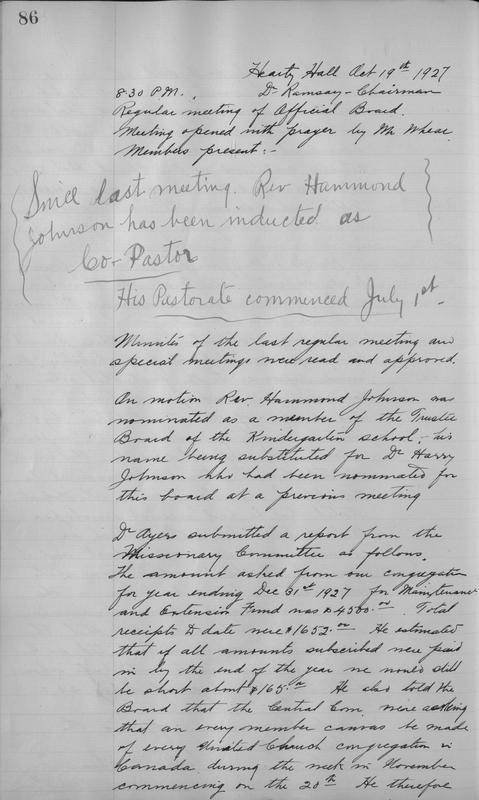 86
Hearty Hall Oct 19th 1927
8.30 P.M. Dr Ramsay - Chairman
Regular meeting of Official Board.
Meeting opened with prayer by Mr Whear.
Members present :-
Since last meeting. Rev Hammond
Johnson has been inducted as
Co-Pastor
His Pastorate commenced July 1st -
Minutes of the last regular meeting and
special meetings were read and approved.
On motion Rev. Hammond Johnson was
nominated as a member of the Trustee
Board of the Kindergarten school, - his
name being substituted for Dr Harry
Johnson who had been nominated for
this board at a previous meeting
Dr Ayers submitted a report from the
Missionary Committee as follows.
The amount asked from our congregation
for year ending Dec 31st 1927 for Maintenance
and Extension Fund was $4500.00. Total
receipts to date were $1652.00 He estimated
that if all amounts subscribed were paid
in by the end of the year we would still
be short about $165.00 He also told the
Board that the Central Com. were asking
that an every member canvas be made
of every United Church congregation in
Canada during the week in November
commencing on the 20th He therefore